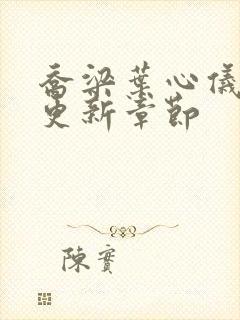 喬梁葉心儀
更新章節
陳實